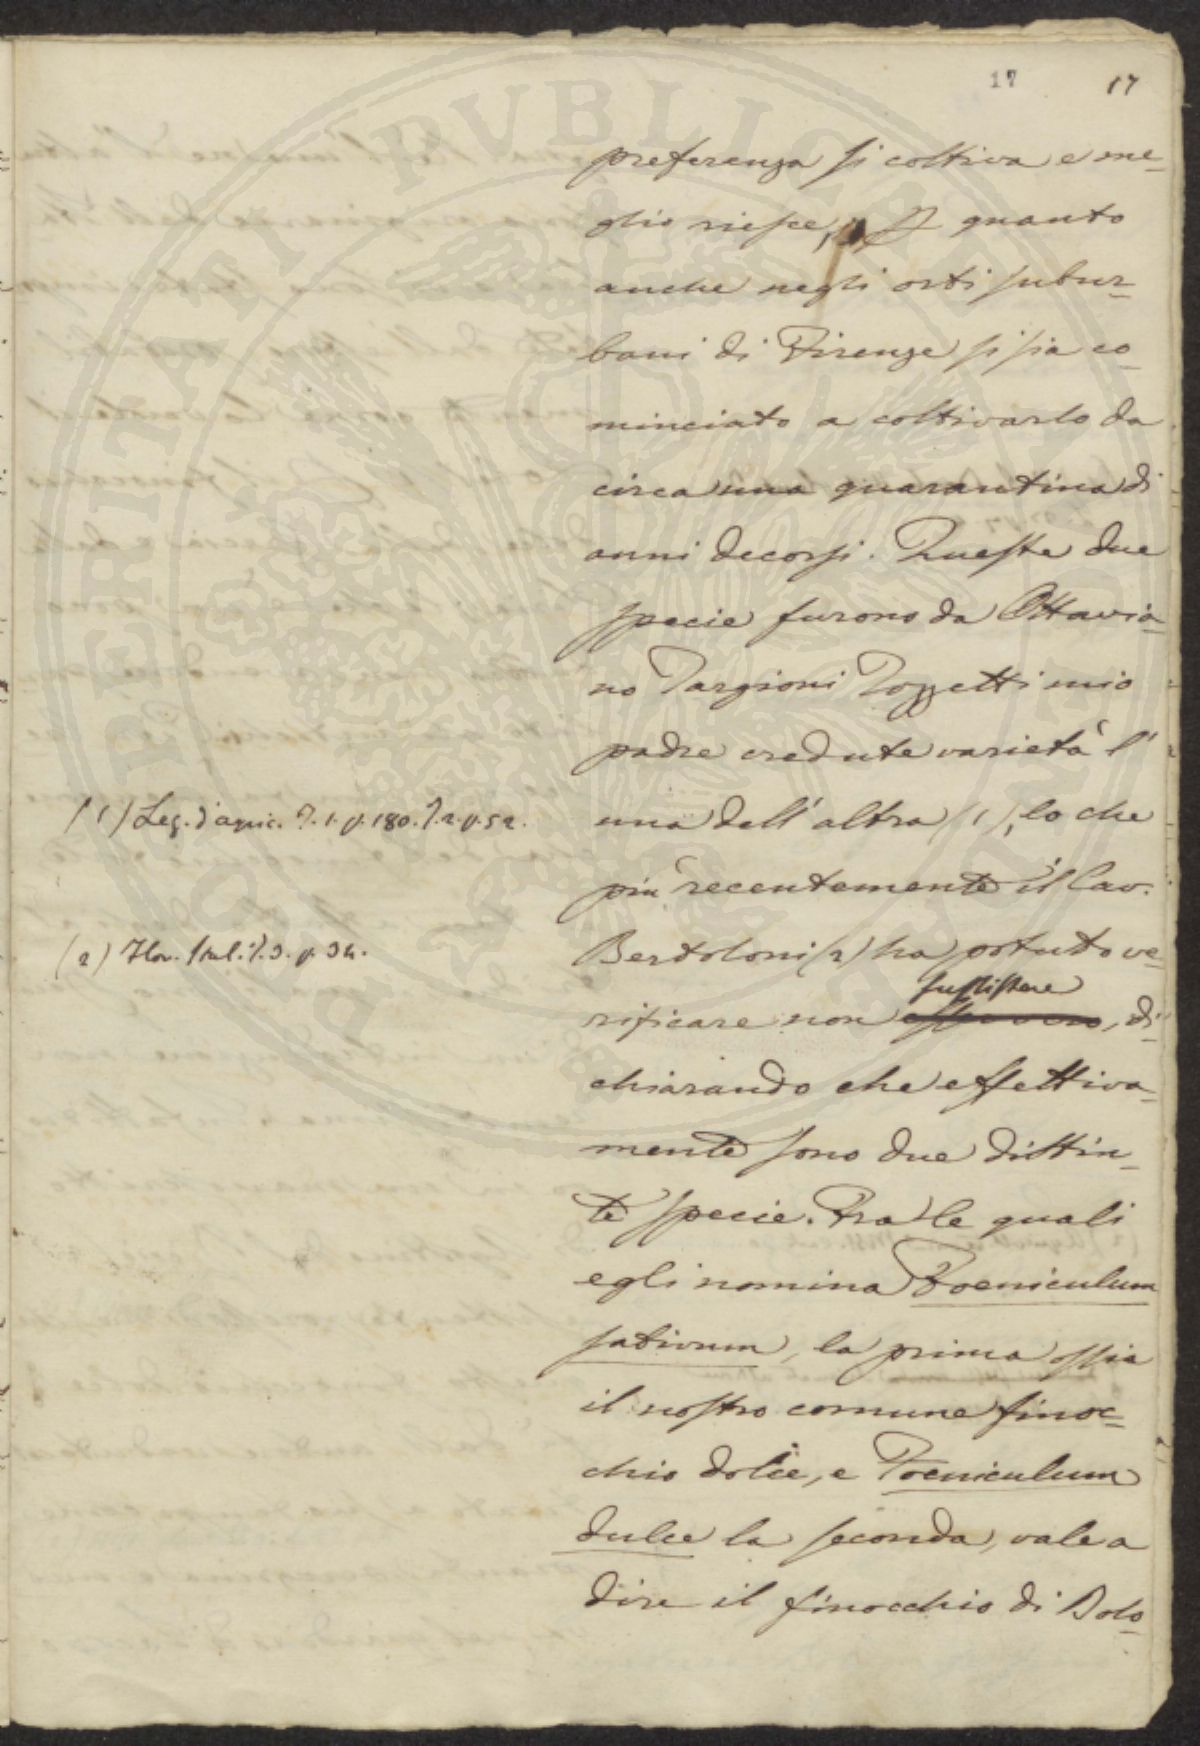 17 17
preferenza si coltiva e me-
glio riesce, quanto
anche negli orti subur-
bani di Firenze si sia co-
minciato a coltivarlo da
circa una quarantina di
anni decorsi. Queste due
specie furono da Ottavia-
no Targioni Tozzetti mio
padre credute varietà l'
una dell'altra (1), lo che
(1) Lez. d'agric. T. 1. p. 180. T. 2. p. 52.
più recentemente il Cav.
Bertoloni (2) ha potuto ve-
(2) Flor. Ital. T. 3. p. 34.
sussistere
rificare non, di-
chiarando che effettiva-
mente sono due distin-
te specie. Fra le quali
egli nomina Foeniculum
sativum, la prima ossia
il nostro comune finoc-
chio dolce, e Foeniculum
dulce la seconda, vale a
dire il finocchio di Bolo-
PUBLICAE